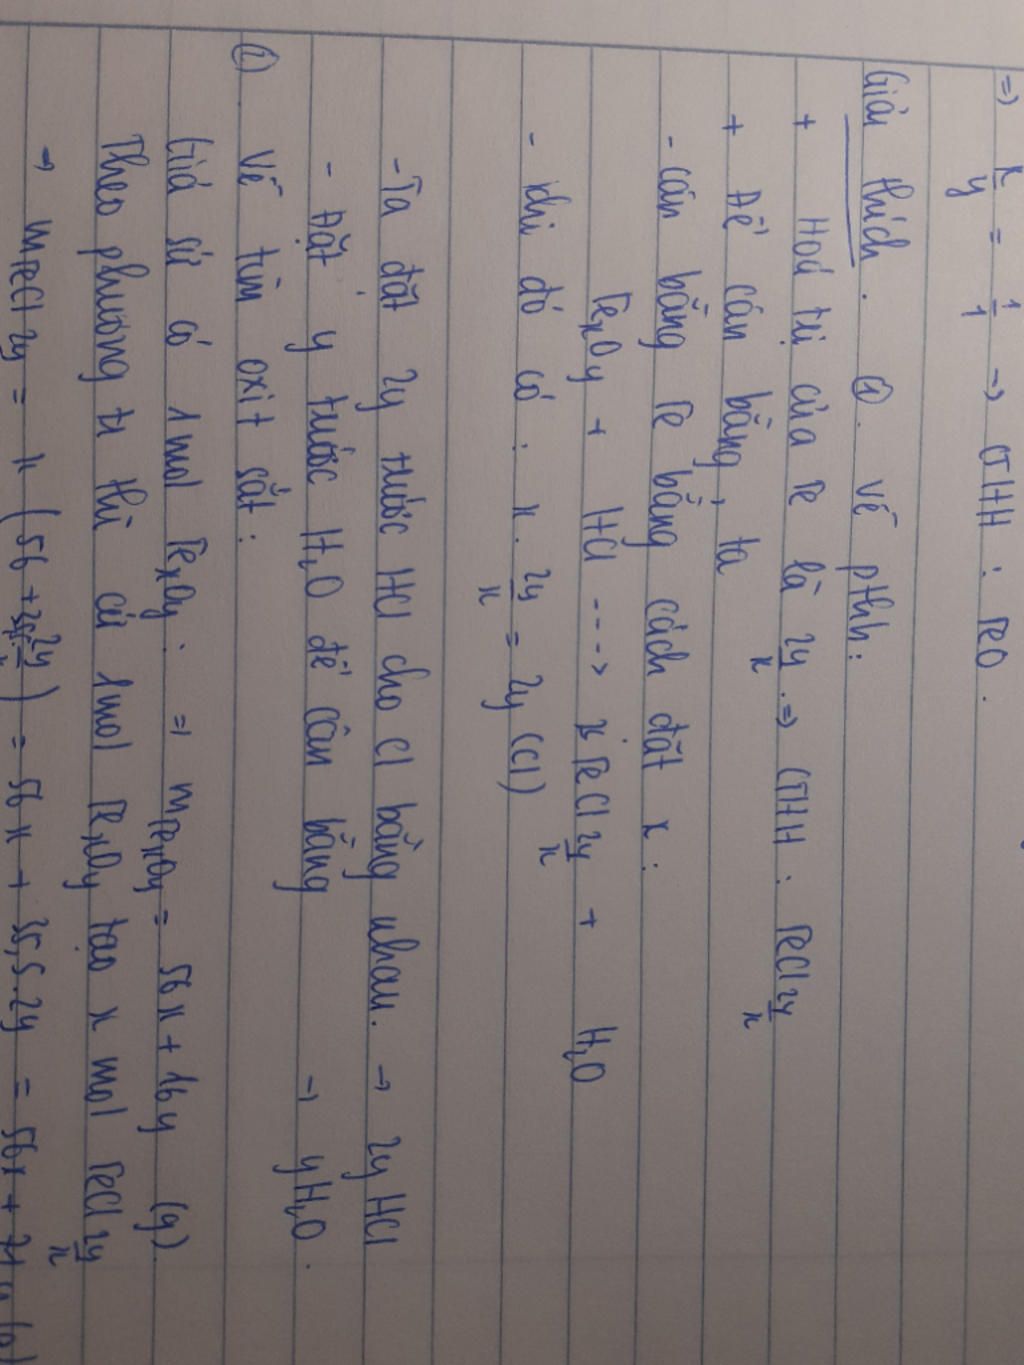 => x/y = 1/1 -> CTHH : FeO.
Giải thích. ①. Về pthh:
+ Hoá trị của Fe là 2y/x. => CTHH : FeCl2y/x
+ Để cân bằng, ta
- cân bằng Fe bằng cách đặt x:
FexOy + HCl ----> xFeCl2y/x + H2O
- khi đó có : x. 2y/x = 2y (Cl)
- Ta đặt 2y trước HCl cho Cl bằng nhau. -> 2yHCl
- Đặt y trước H2O để cân bằng -> yH2O.
②. Về tìm oxit sắt:
Giả sử có 1mol FexOy. => mFexOy = 56x + 16y (g).
Theo phương tr thì cứ 1mol FexOy tạo x mol FeCl2y/x
-> mFeCl2y/x = x (56 + 35,5.2y/x) = 56x + 35,5.2y = 56x + 71y (g)